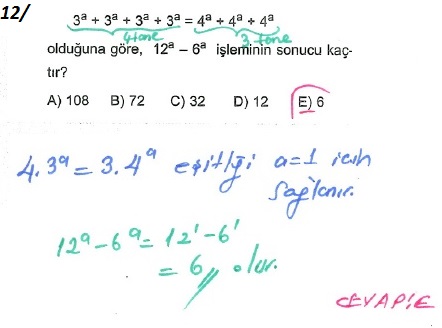 12/
3ᵃ + 3ᵃ + 3ᵃ + 3ᵃ = 4ᵃ + 4ᵃ + 4ᵃ
4 tane 3 tane
olduğuna göre, 12ᵃ – 6ᵃ işleminin sonucu kaç-
tır?
A) 108 B) 72 C) 32 D) 12 E) 6
4.3ᵃ = 3.4ᵃ eşitliği a=1 için
sağlanır.
12ᵃ-6ᵃ = 12¹-6¹
= 6 olur.
CEVAP:E